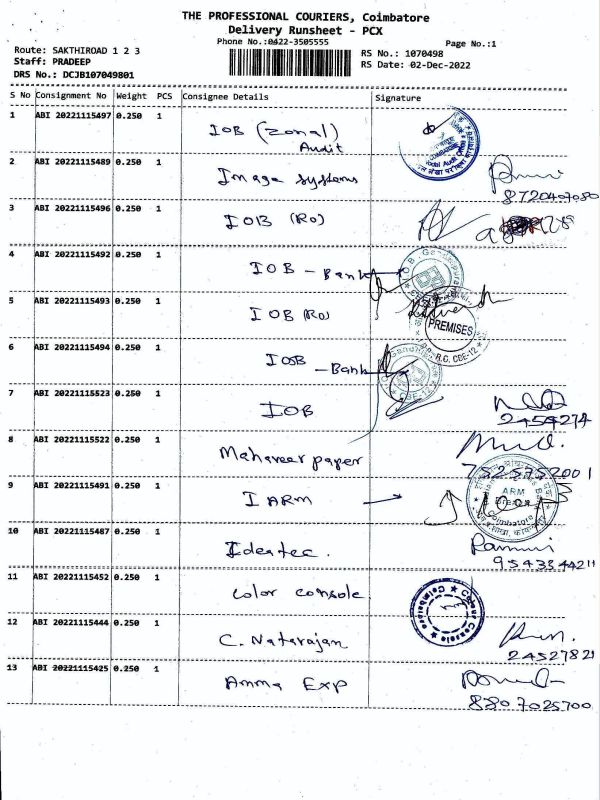 THE PROFESSIONAL COURIERS, Coimbatore
Delivery Runsheet - PCX
Phone No.:0422-3505555
Page No.:1
Route: SAKTHIROAD 1 2 3
RS No.: 1070498
Staff: PRADEEP
RS Date: 02-Dec-2022
DRS No.: DCJB107049801
S No Consignment No Weight PCS Consignee Details Signature
1 ABI 20221115497 0.250 1 IOB (Zonal)
Audit
2 ABI 20221115489 0.250 1 Image systems
8720407080
3 ABI 20221115496 0.250 1 IOB (Ro)
4 ABI 20221115492 0.250 1 IOB - Bank
5 ABI 20221115493 0.250 1 IOB (Ro)
PREMISES
R.O. CBE-12
6 ABI 20221115494 0.250 1 IOB - Bank
CBE-12
7 ABI 20221115523 0.250 1 IOB
2454274
8 ABI 20221115522 0.250 1 Mahaveer paper
7525752001
9 ABI 20221115491 0.250 1 IARM
ARM
Branch
Coimbatore
10 ABI 20221115487 0.250 1 Ideatec.
9543344211
11 ABI 20221115452 0.250 1 Color console.
Colour Console
Coimbatore
12 ABI 20221115444 0.250 1 C. Natarajan
24527821
13 ABI 20221115425 0.250 1 Amma Exp
8807025700